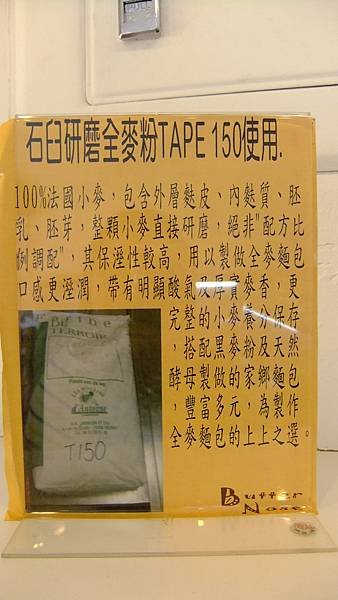 PULL
石臼研磨全麥粉TAPE 150使用.
100%法國小麥，包含外層麩皮、內麩質、胚
乳、胚芽，整顆小麥直接研磨，絕非"配方比
例調配"，其保溼性較高，用以製做全麥麵包
口感更溼潤，帶有明顯酸氣及厚實麥香，更
完整的小麥養分保存
，搭配黑麥粉及天然
酵母製做的家鄉麵包
，豐富多元，為製作
全麥麵包的上上之選。
Farine
DU
TERROIR
d'Antoine
T150
Butter
Nose